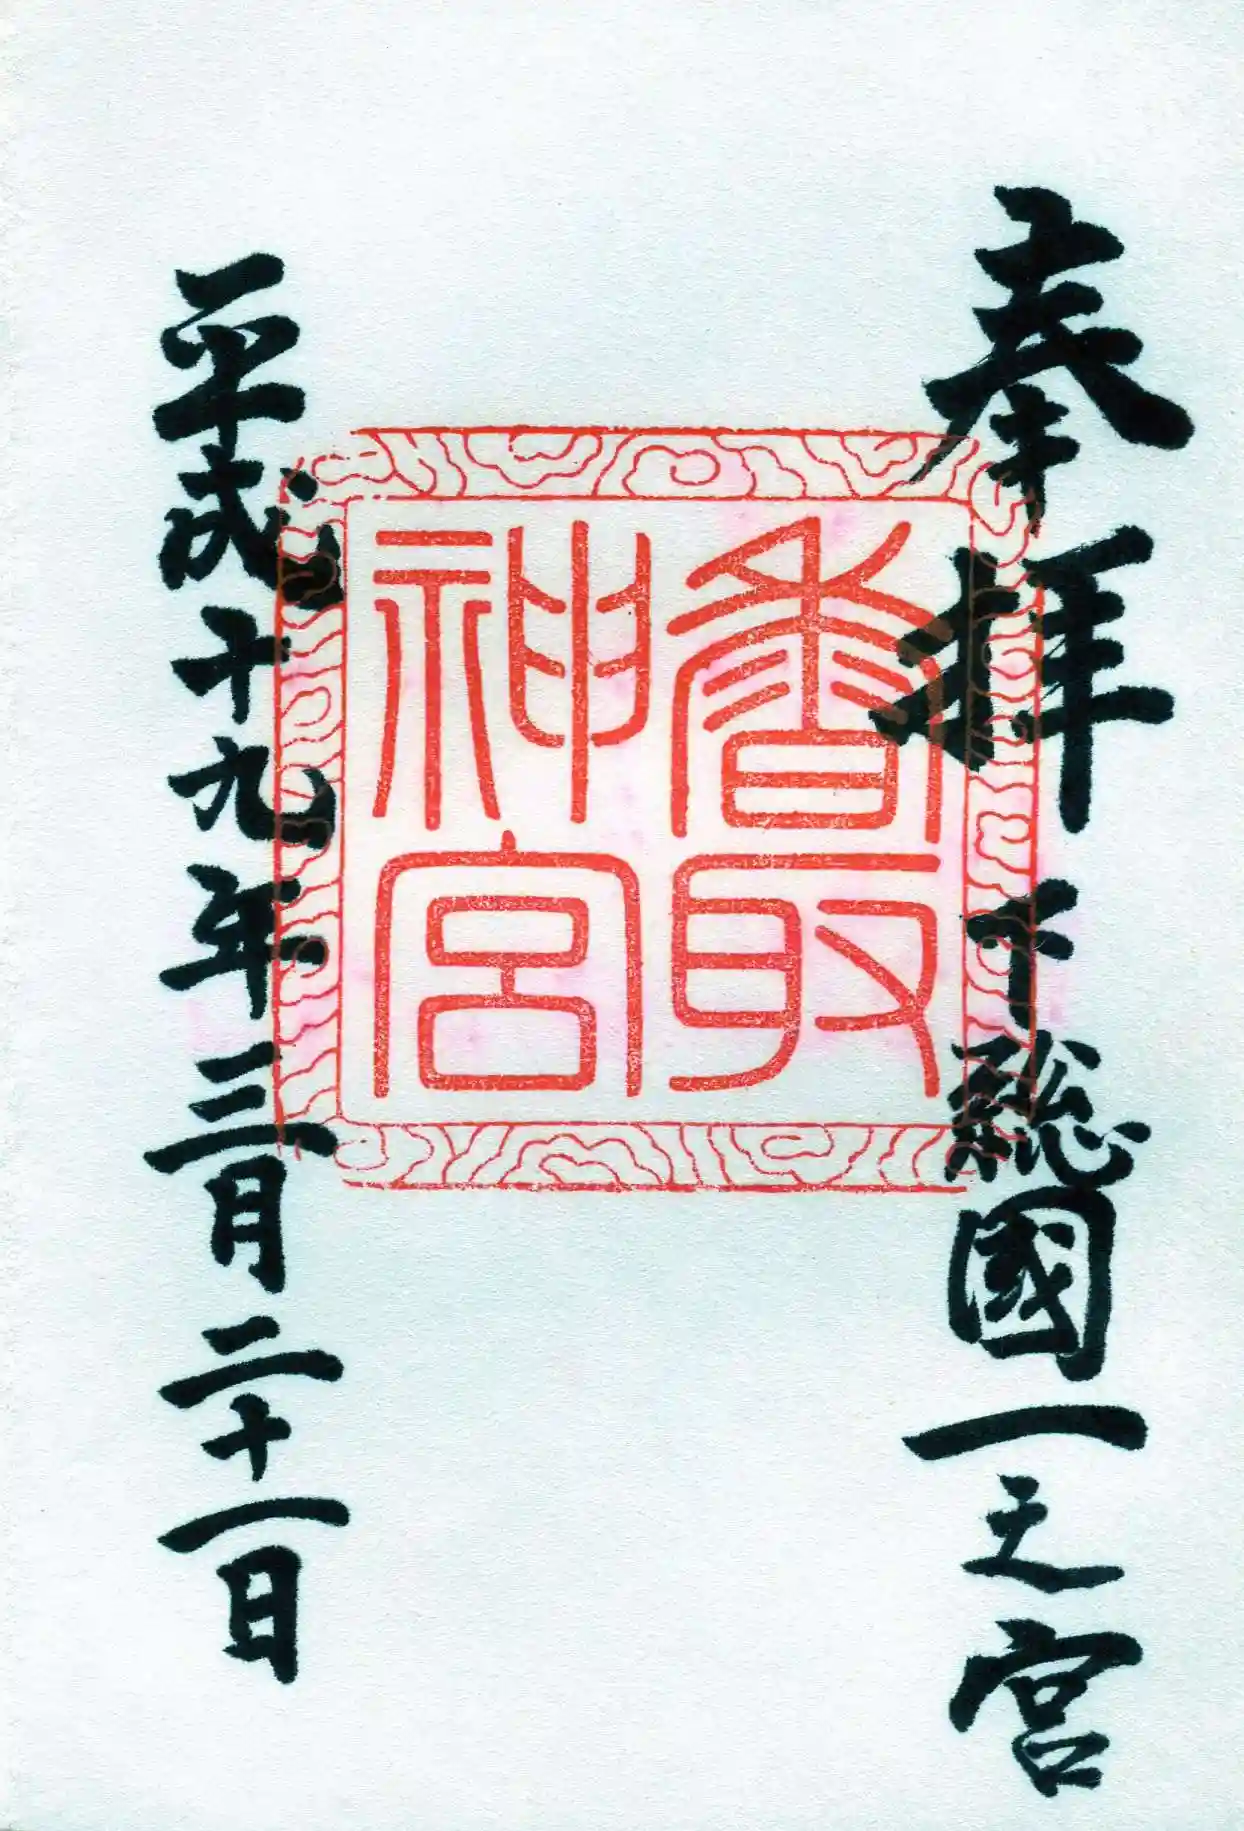 奉拝 下総國一之宮
香取
神宮
平成十九年三月二十一日